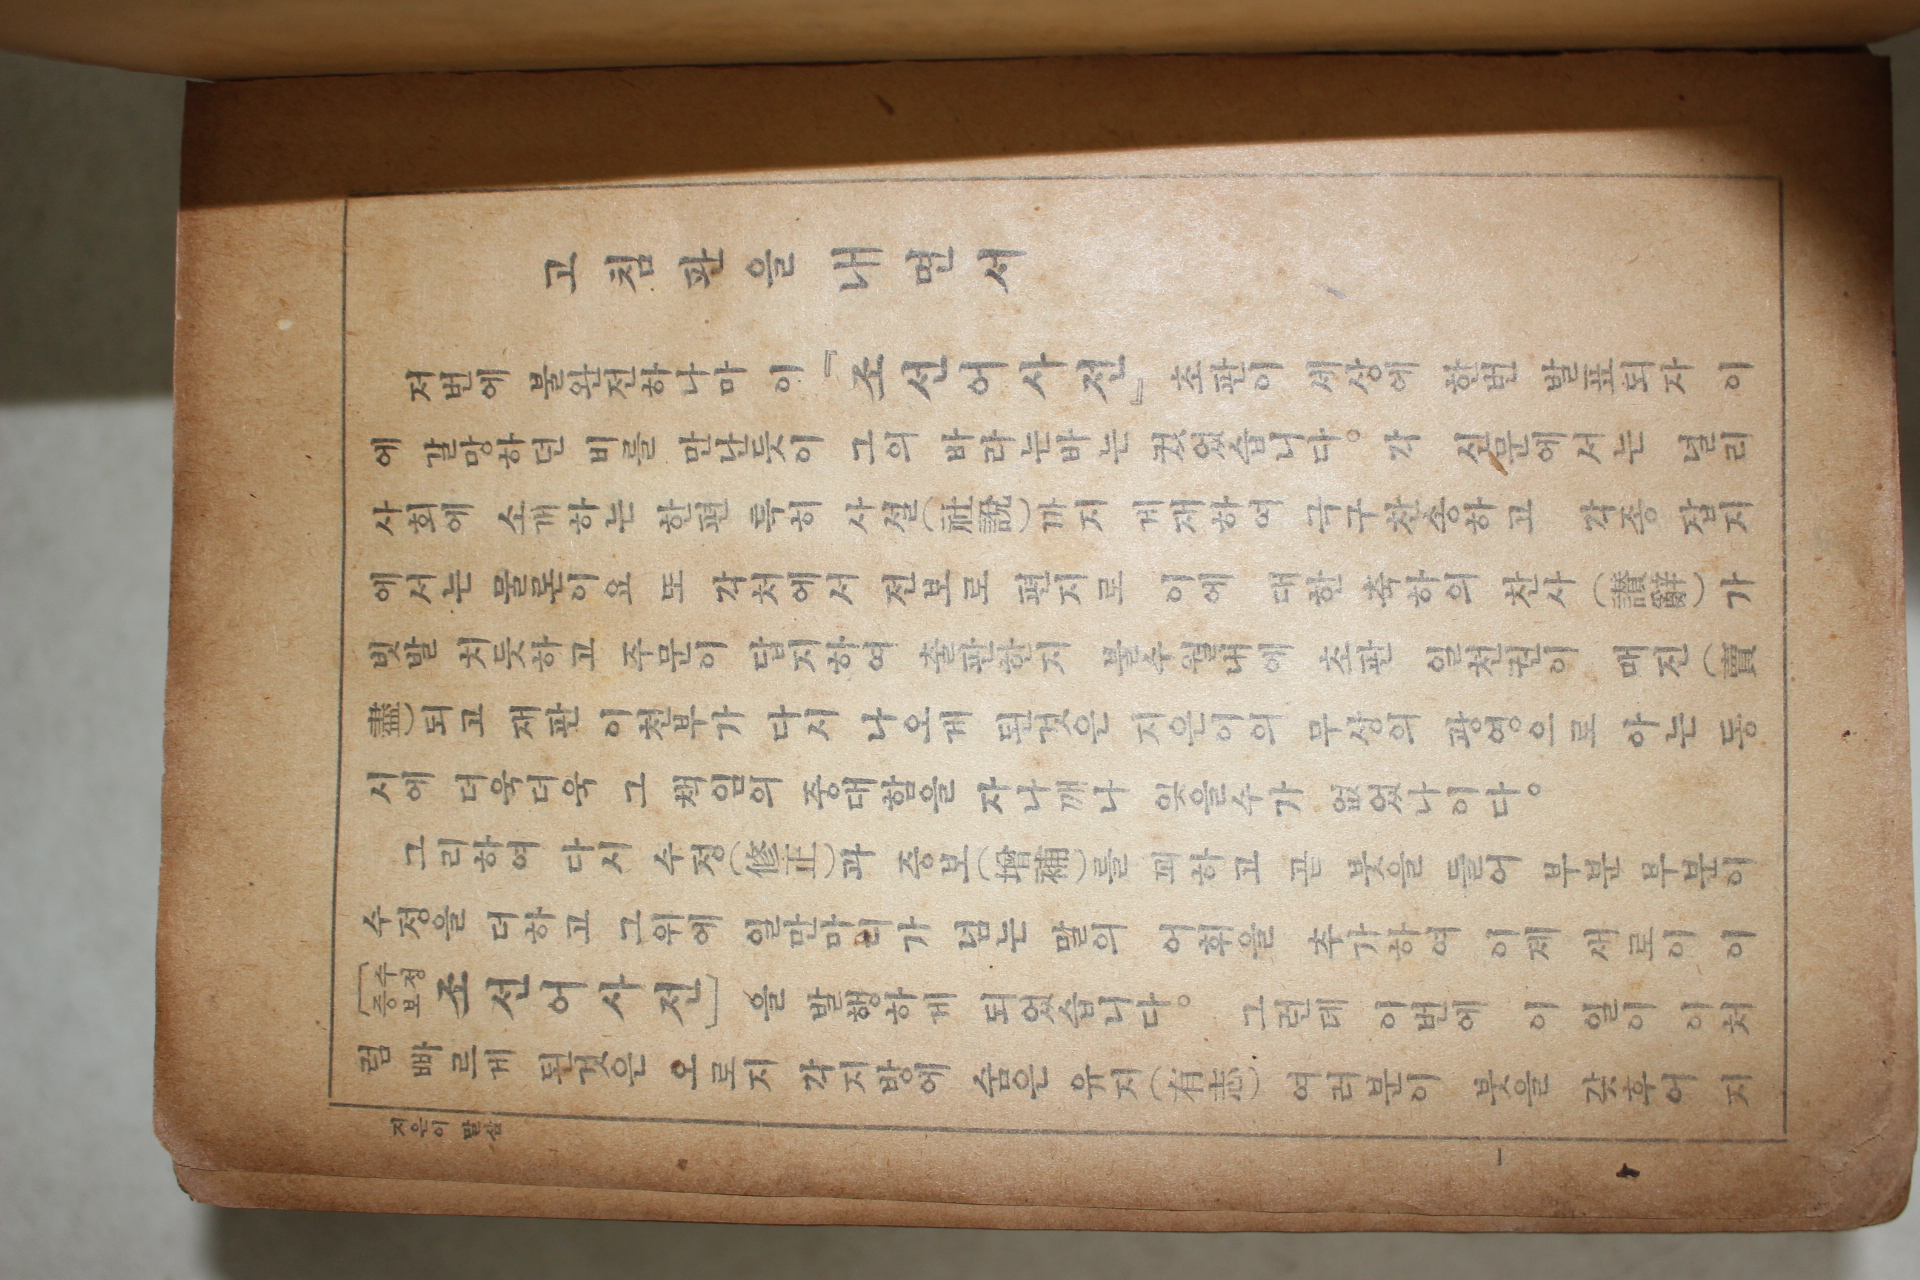 고침판을 내면서
저번에 불완전하나마 이 『조선어사전』 초판이 세상에 한번 발표되자 이
에 갈망하던 비를 만난듯이 그의 바라는바는 컸었습니다。 각 신문에서는 널리
사회에 소개하는 한편 특히 사설(社說)까지 게재하여 극구찬송하고 각종 잡지
에서는 물론이요 또 각처에서 전보로 편지로 이에 대한 축하의 찬사(讃辭)가
빗발 치듯하고 주문이 답지하여 출판한지 불수월내에 초판 일천권이 매진(賣
盡)되고 재판 이천부가 다시 나오게 된것은 지은이의 무상의 광영으로 아는 동
시에 더욱더욱 그 책임의 중대함을 자나깨나 잊을수가 없었나이다。
그리하여 다시 수정(修正)과 증보(增補)를 꾀하고 곧 붓을 들어 부분 부분이
수정을 더하고 그위에 일만마리가 넘는 말의 어휘을 추가하여 이제 새로이 이
〔수정증보 조선어사전〕을 발행하게 되었습니다。 그런데 이번에 이 일이 이처
럼 빠르게 된것은 오로지 각지방에 숨은 유지(有志) 여러분이 붓을 갖후어 지
지은이 말삼
一